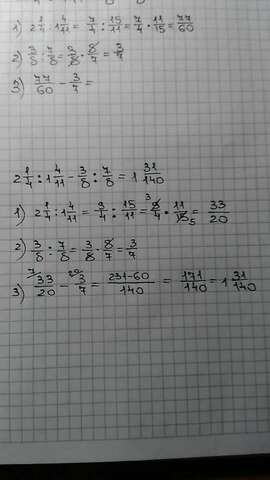 1) 2 1/4 : 1 4/11 = 7/4 : 15/11 = 7/4 · 11/15 = 77/60
2) 3/8 : 7/8 = 3/8 · 8/7 = 3/7
3) 77/60 - 3/7 =
2 1/4 : 1 4/11 - 3/8 : 7/8 = 1 31/140
1) 2 1/4 : 1 4/11 = 9/4 : 15/11 = 3 9/4 · 11/15 5 = 33/20
2) 3/8 : 7/8 = 3/8 · 8/7 = 3/7
3) 7 33/20 - 20 3/7 = 231-60/140 = 171/140 = 1 31/140